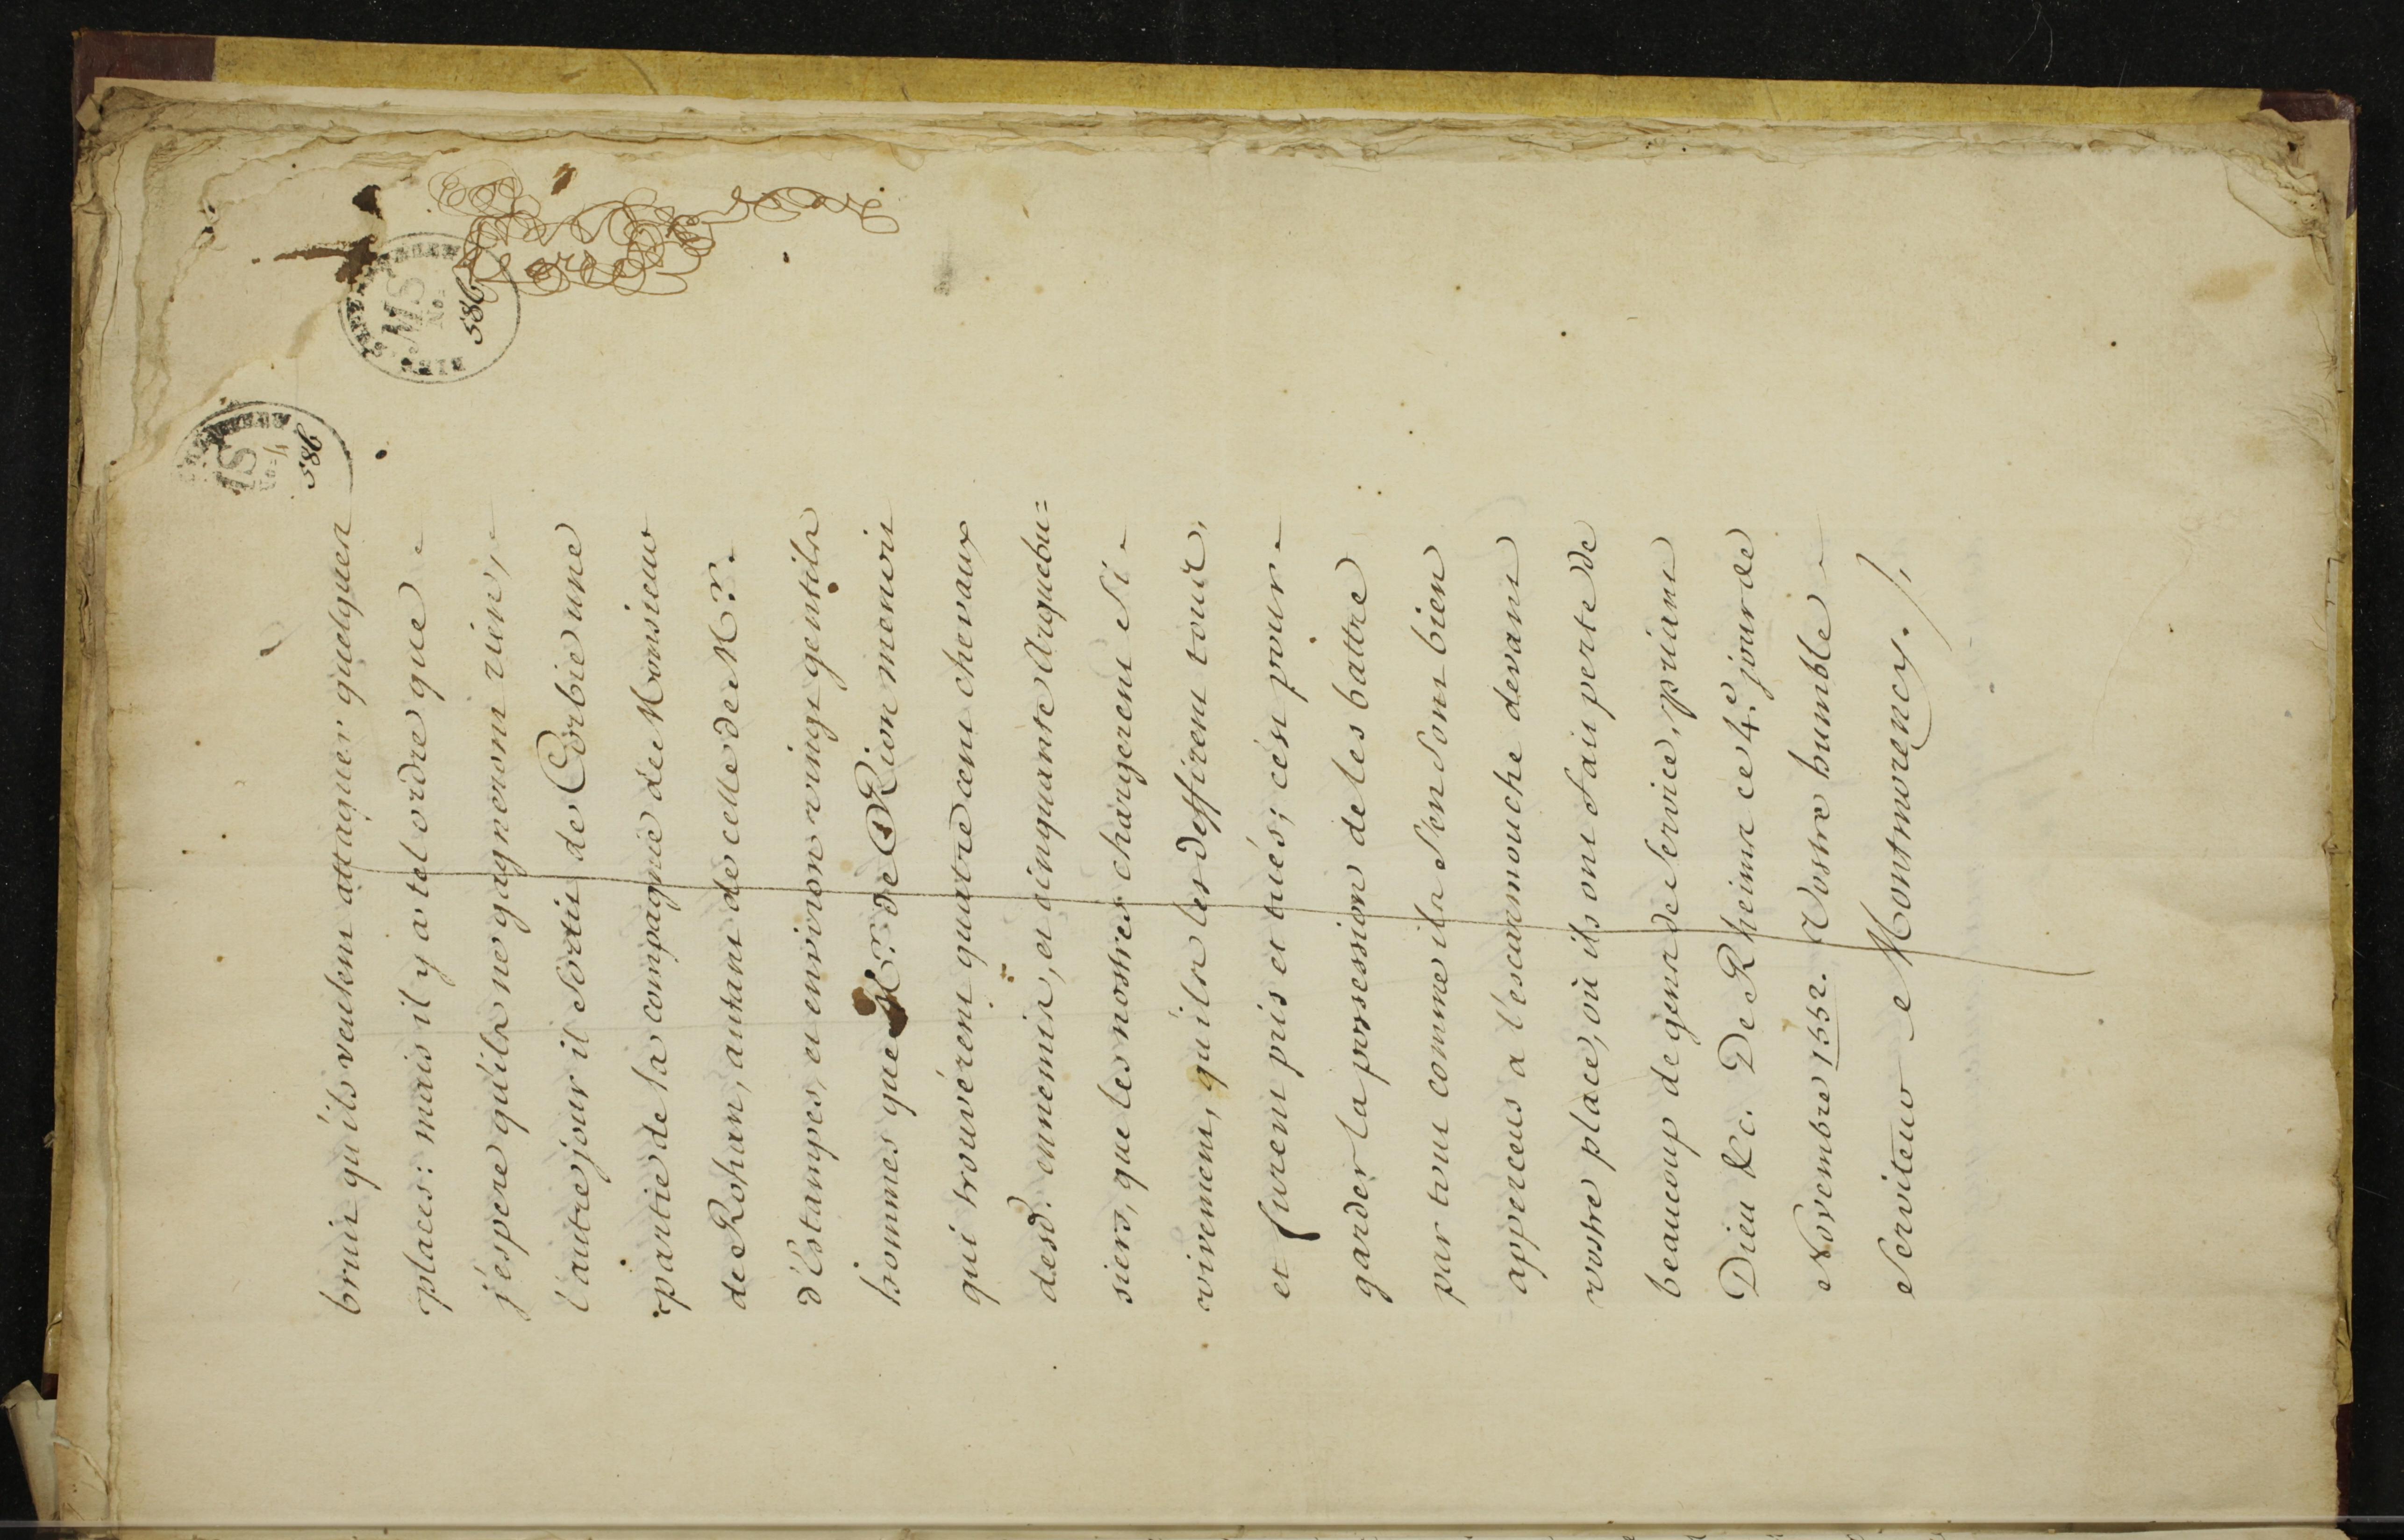 bruit qu'ils veulent attaquer quelques
places: mais il y a tel ordre que
j'espere qu'ils ne gagneront rien,
l'autre jour il sortit de Corbie une
partie de la compagnie de Monsieur
de Rohan, autant de celle de Mr.
d'Estampes, et environ vingt gentils
hommes que Mr. de Rion menoit
qui trouvérent quatre cent chevaux
desd. ennemis, et cinquante Arquebu=
siers, que les nostres chargerent si
vivement, qu'ils les deffirent tous,
et furent pris et tués; c'est pour
garder la possession de les battre
par tout comme ils s'en sont bien
apperceus a l'escarmouche devant
vostre place, où ils ont fait perte de
beaucoup de gens de service, priant
Dieu &c. De Rheims ce 4.e jour de
Novembre 1552. Vostre humble
Serviteur Montmorency./.
MS
No.
586
MS
No.
586